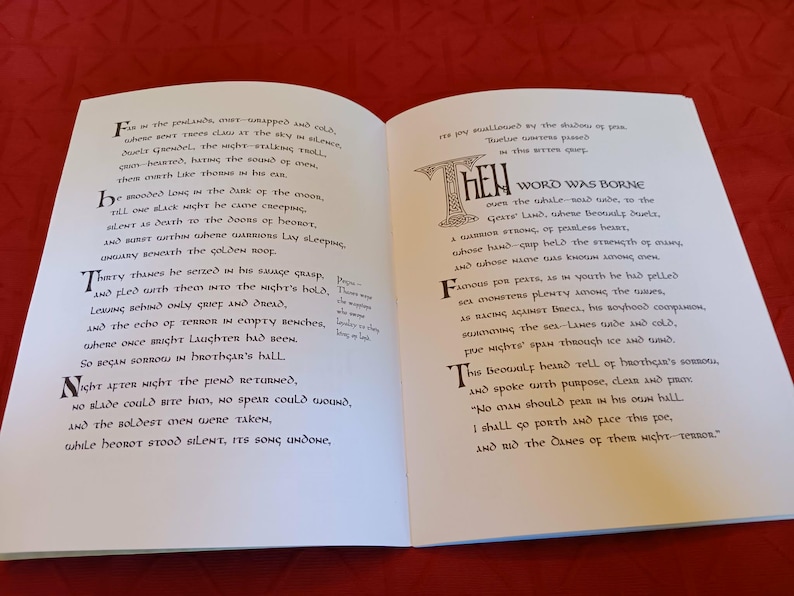 Far in the fenlands, mist-wrapped and cold,
where bent trees claw at the sky in silence,
dwelt Grendel, the night-stalking troll,
grim-hearted, hating the sound of men,
their mirth like thorns in his ear.
He brooded long in the dark of the moor,
till one black night he came creeping,
silent as death to the doors of Heorot,
and burst within where warriors lay sleeping,
unwary beneath the golden roof.
Thirty thanes he seized in his savage grasp,
and fled with them into the night's hold,
leaving behind only grief and dread,
and the echo of terror in empty benches,
where once bright laughter had been.
So began sorrow in Hrothgar's hall.
Night after night the fiend returned,
no blade could bite him, no spear could wound,
and the boldest men were taken,
while Heorot stood silent, its song undone,
Thanes were
the warriors
who swore
loyalty to their
king or lord.
its joy swallowed by the shadow of fear.
Twelve winters passed
in this bitter grief.
Then word was borne
over the whale-road wide, to the
Geats' Land, where Beowulf dwelt,
a warrior strong, of fearless heart,
whose hand-grip held the strength of many,
and whose name was known among men.
Famous for feats, as in youth he had felled
sea monsters plenty among the waves,
as racing against Breca, his boyhood companion,
swimming the sea-lanes wide and cold,
five nights' span through ice and wind.
This Beowulf heard tell of Hrothgar's sorrow,
and spoke with purpose, clear and firm.
"No man should fear in his own hall.
I shall go forth and face this foe,
and rid the Danes of their night-terror."